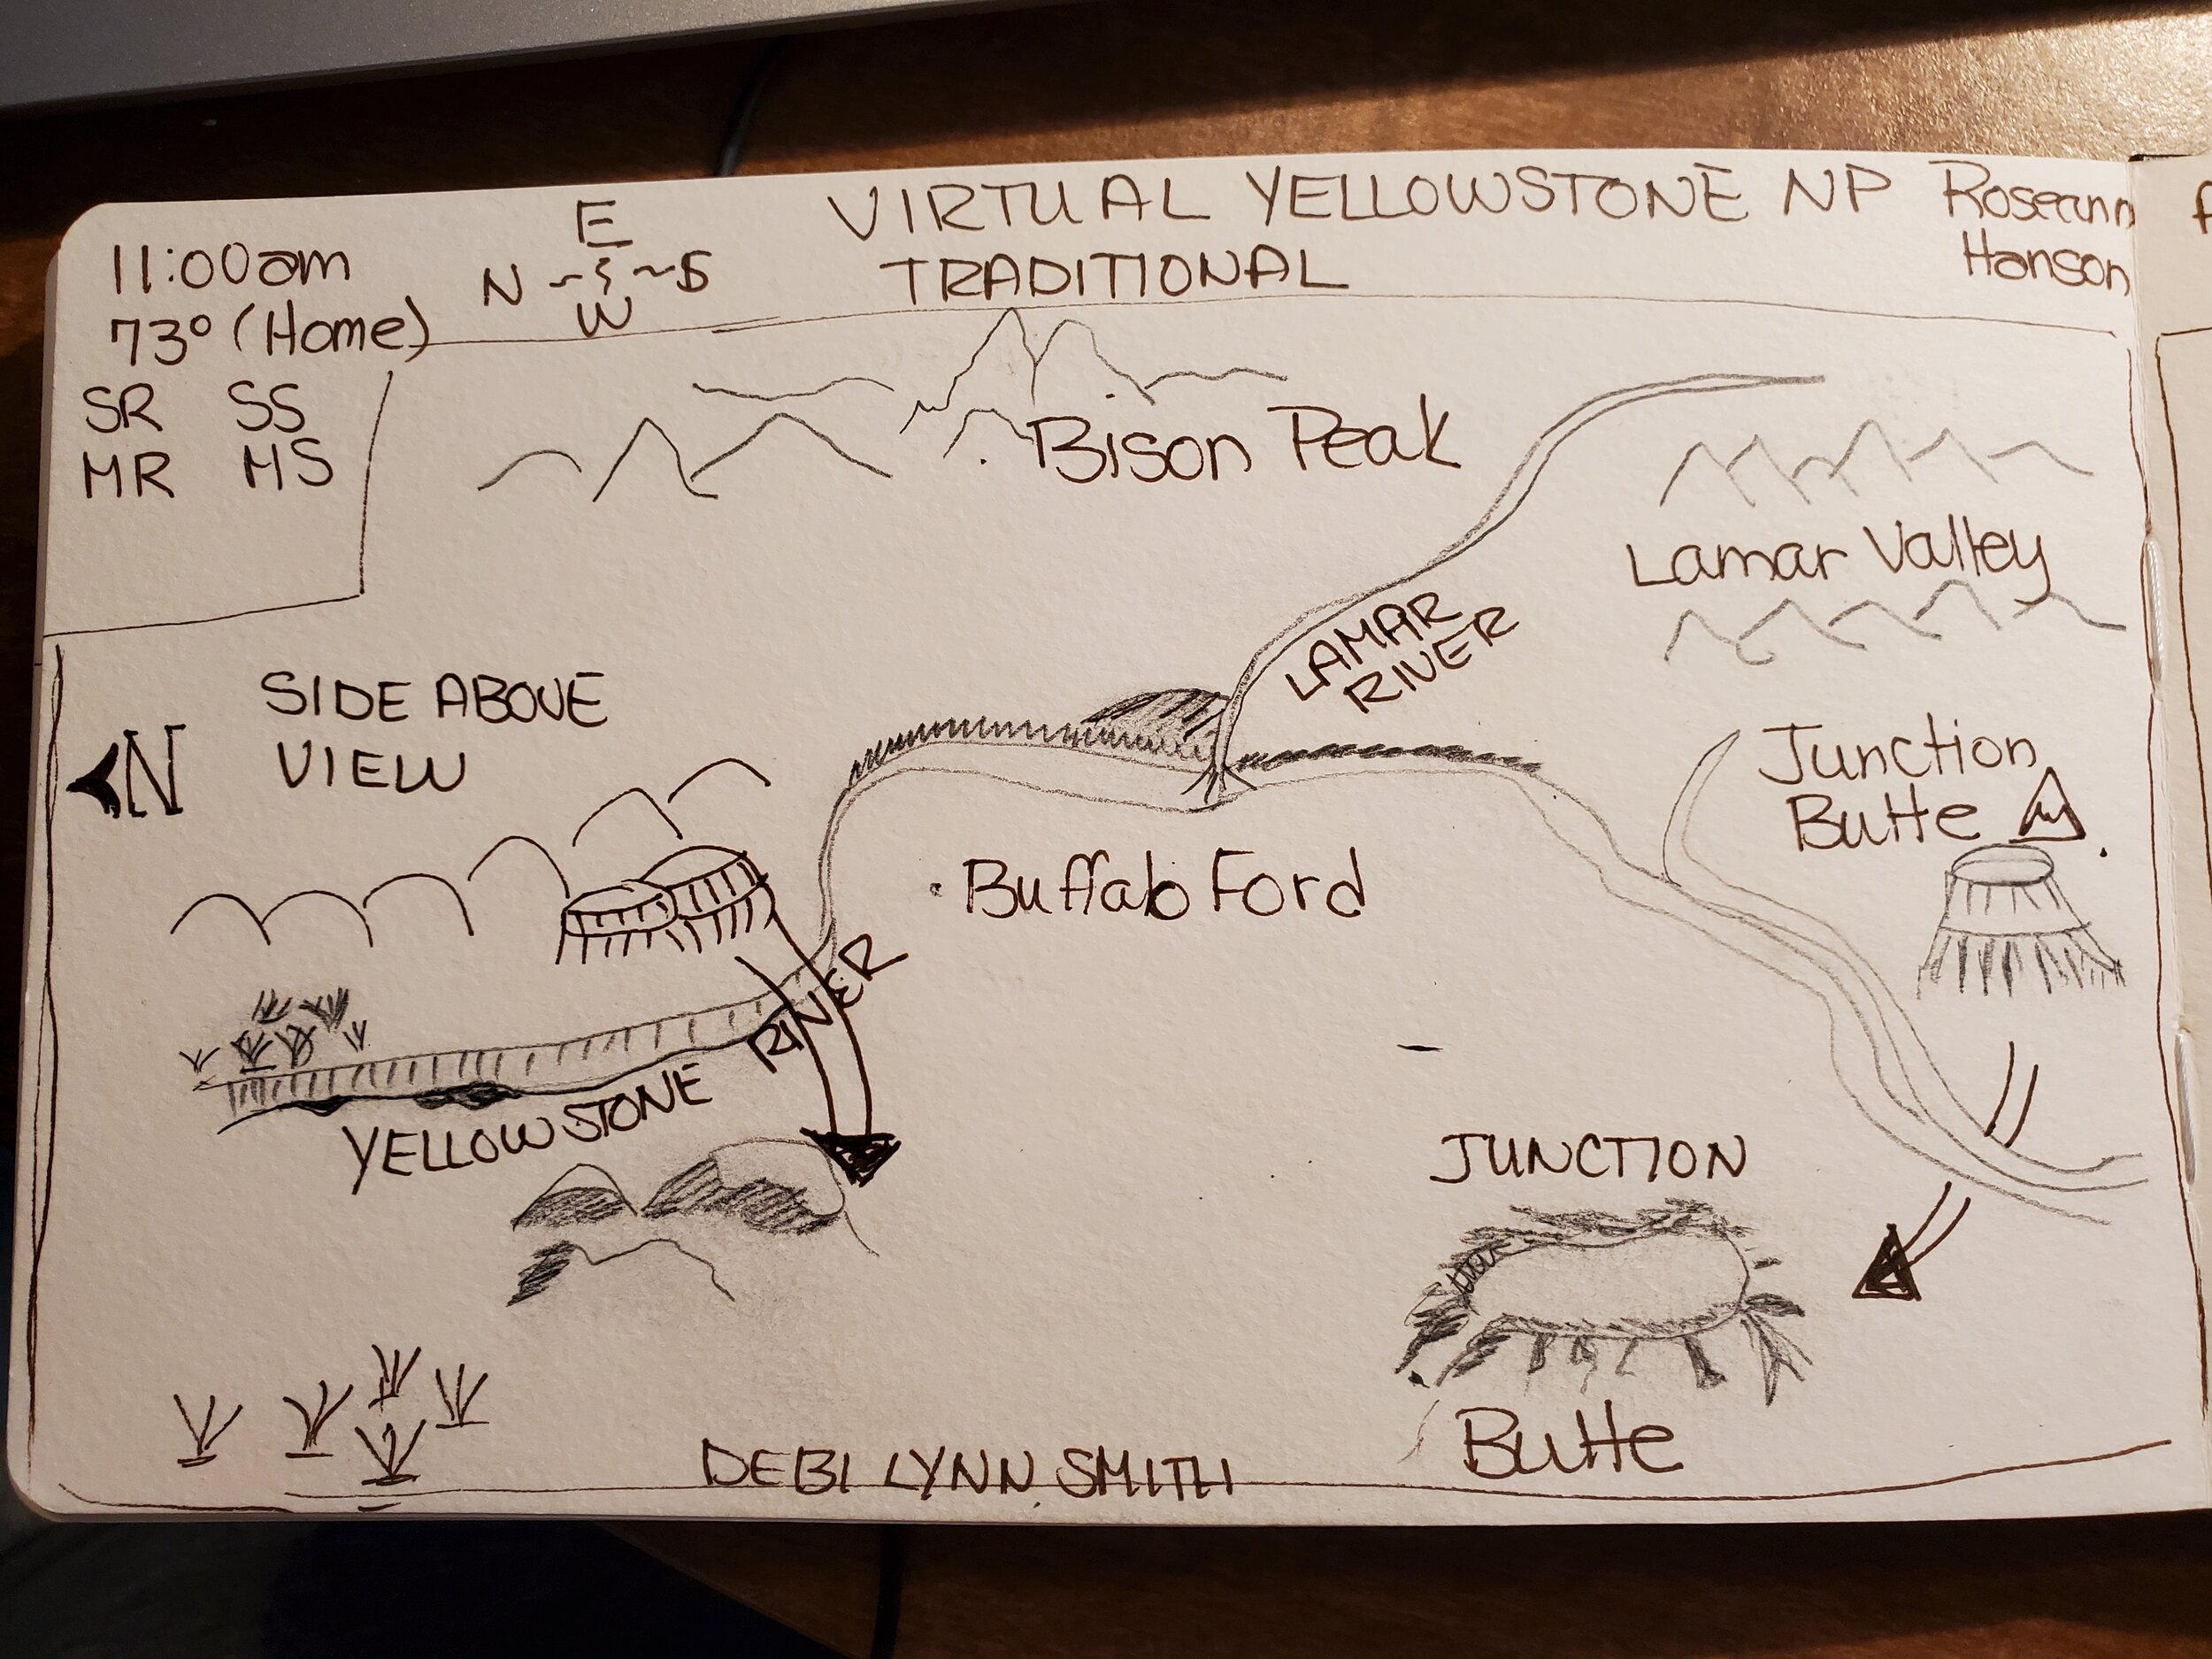 11:00am
73° (Home)
SR SS
MR MS
E
N S
W
VIRTUAL YELLOWSTONE NP
TRADITIONAL
Roseann
Hanson
Bison Peak
Lamar Valley
LAMAR
RIVER
SIDE ABOVE
VIEW
N
Junction
Butte
Buffalo Ford
YELLOWSTONE RIVER
JUNCTION
Butte
DEBI LYNN SMITH